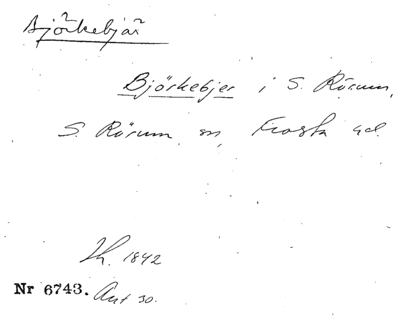 Björkebjär
Björkebjer i S. Rörum,
S. Rörum sn, Frosta hd.
Th. 1842
Nr 6743. Ant 30.